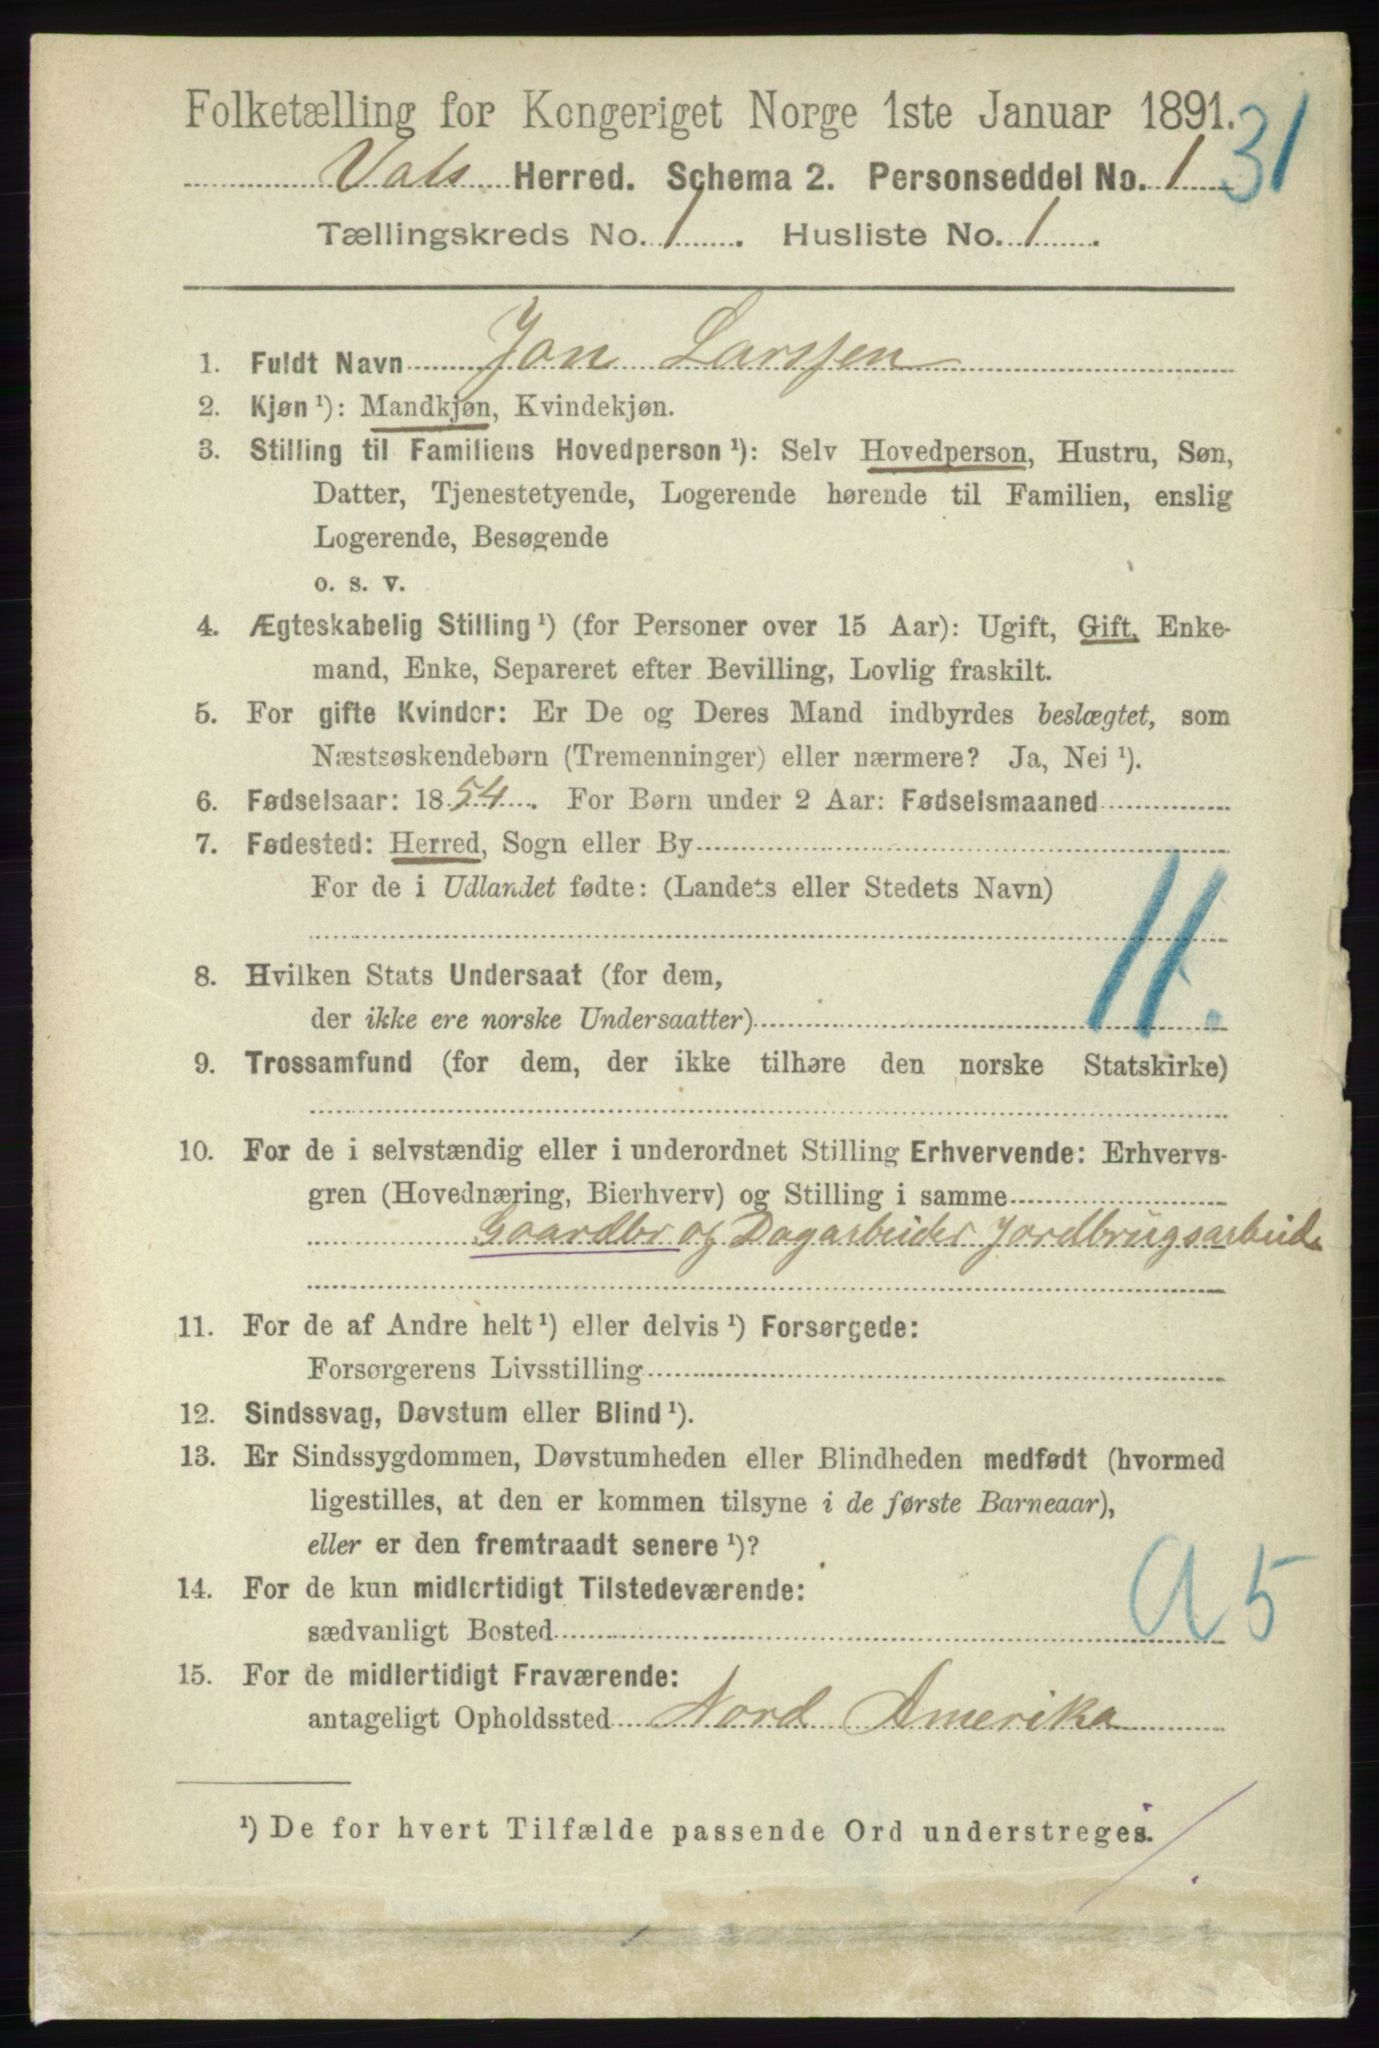 Folketælling for Kongeriget Norge 1ste Januar 1891.
31
Vats Herred. Schema 2. Personseddel No. 1
Tællingskreds No. 1. Husliste No. 1.
1. Fuldt Navn Jon Larssen
2. Kjøn ¹): Mandkjøn, Kvindekjøn.
3. Stilling til Familiens Hovedperson ¹): Selv Hovedperson, Hustru, Søn,
Datter, Tjenestetyende, Logerende hørende til Familien, enslig
Logerende, Besøgende
o. s. v.
4. Ægteskabelig Stilling ¹) (for Personer over 15 Aar): Ugift, Gift, Enke-
mand, Enke, Separeret efter Bevilling, Lovlig fraskilt.
5. For gifte Kvinder: Er De og Deres Mand indbyrdes beslægtet, som
Næstsøskendebørn (Tremenninger) eller nærmere? Ja, Nei ¹).
6. Fødselsaar: 1854. For Børn under 2 Aar: Fødselsmaaned
7. Fødested: Herred, Sogn eller By
For de i Udlandet fødte: (Landets eller Stedets Navn)
8. Hvilken Stats Undersaat (for dem,
der ikke ere norske Undersaatter)
9. Trossamfund (for dem, der ikke tilhøre den norske Statskirke)
10. For de i selvstændig eller i underordnet Stilling Erhvervende: Erhvervs-
gren (Hovednæring, Bierhverv) og Stilling i samme
Gaardbr og Dagarbeider Jordbrugsarbeid.
11. For de af Andre helt ¹) eller delvis ¹) Forsørgede:
Forsørgerens Livsstilling
12. Sindssvag, Døvstum eller Blind ¹).
13. Er Sindssygdommen, Døvstumheden eller Blindheden medfødt (hvormed
ligestilles, at den er kommen tilsyne i de første Barneaar),
eller er den fremtraadt senere ¹)?
14. For de kun midlertidigt Tilstedeværende:
sædvanligt Bosted
a 5
15. For de midlertidigt Fraværende:
antageligt Opholdssted Nord Amerika
¹) De for hvert Tilfælde passende Ord understreges.